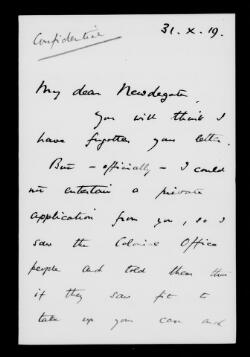 Confidential
31. X. 19.
My dear Newdegate,
You will think I
have forgotten your letter.
But – officially – I could
not entertain a private
application from you, so I
saw the Colonial Office
people and told them that
if they saw fit to
take up your case and